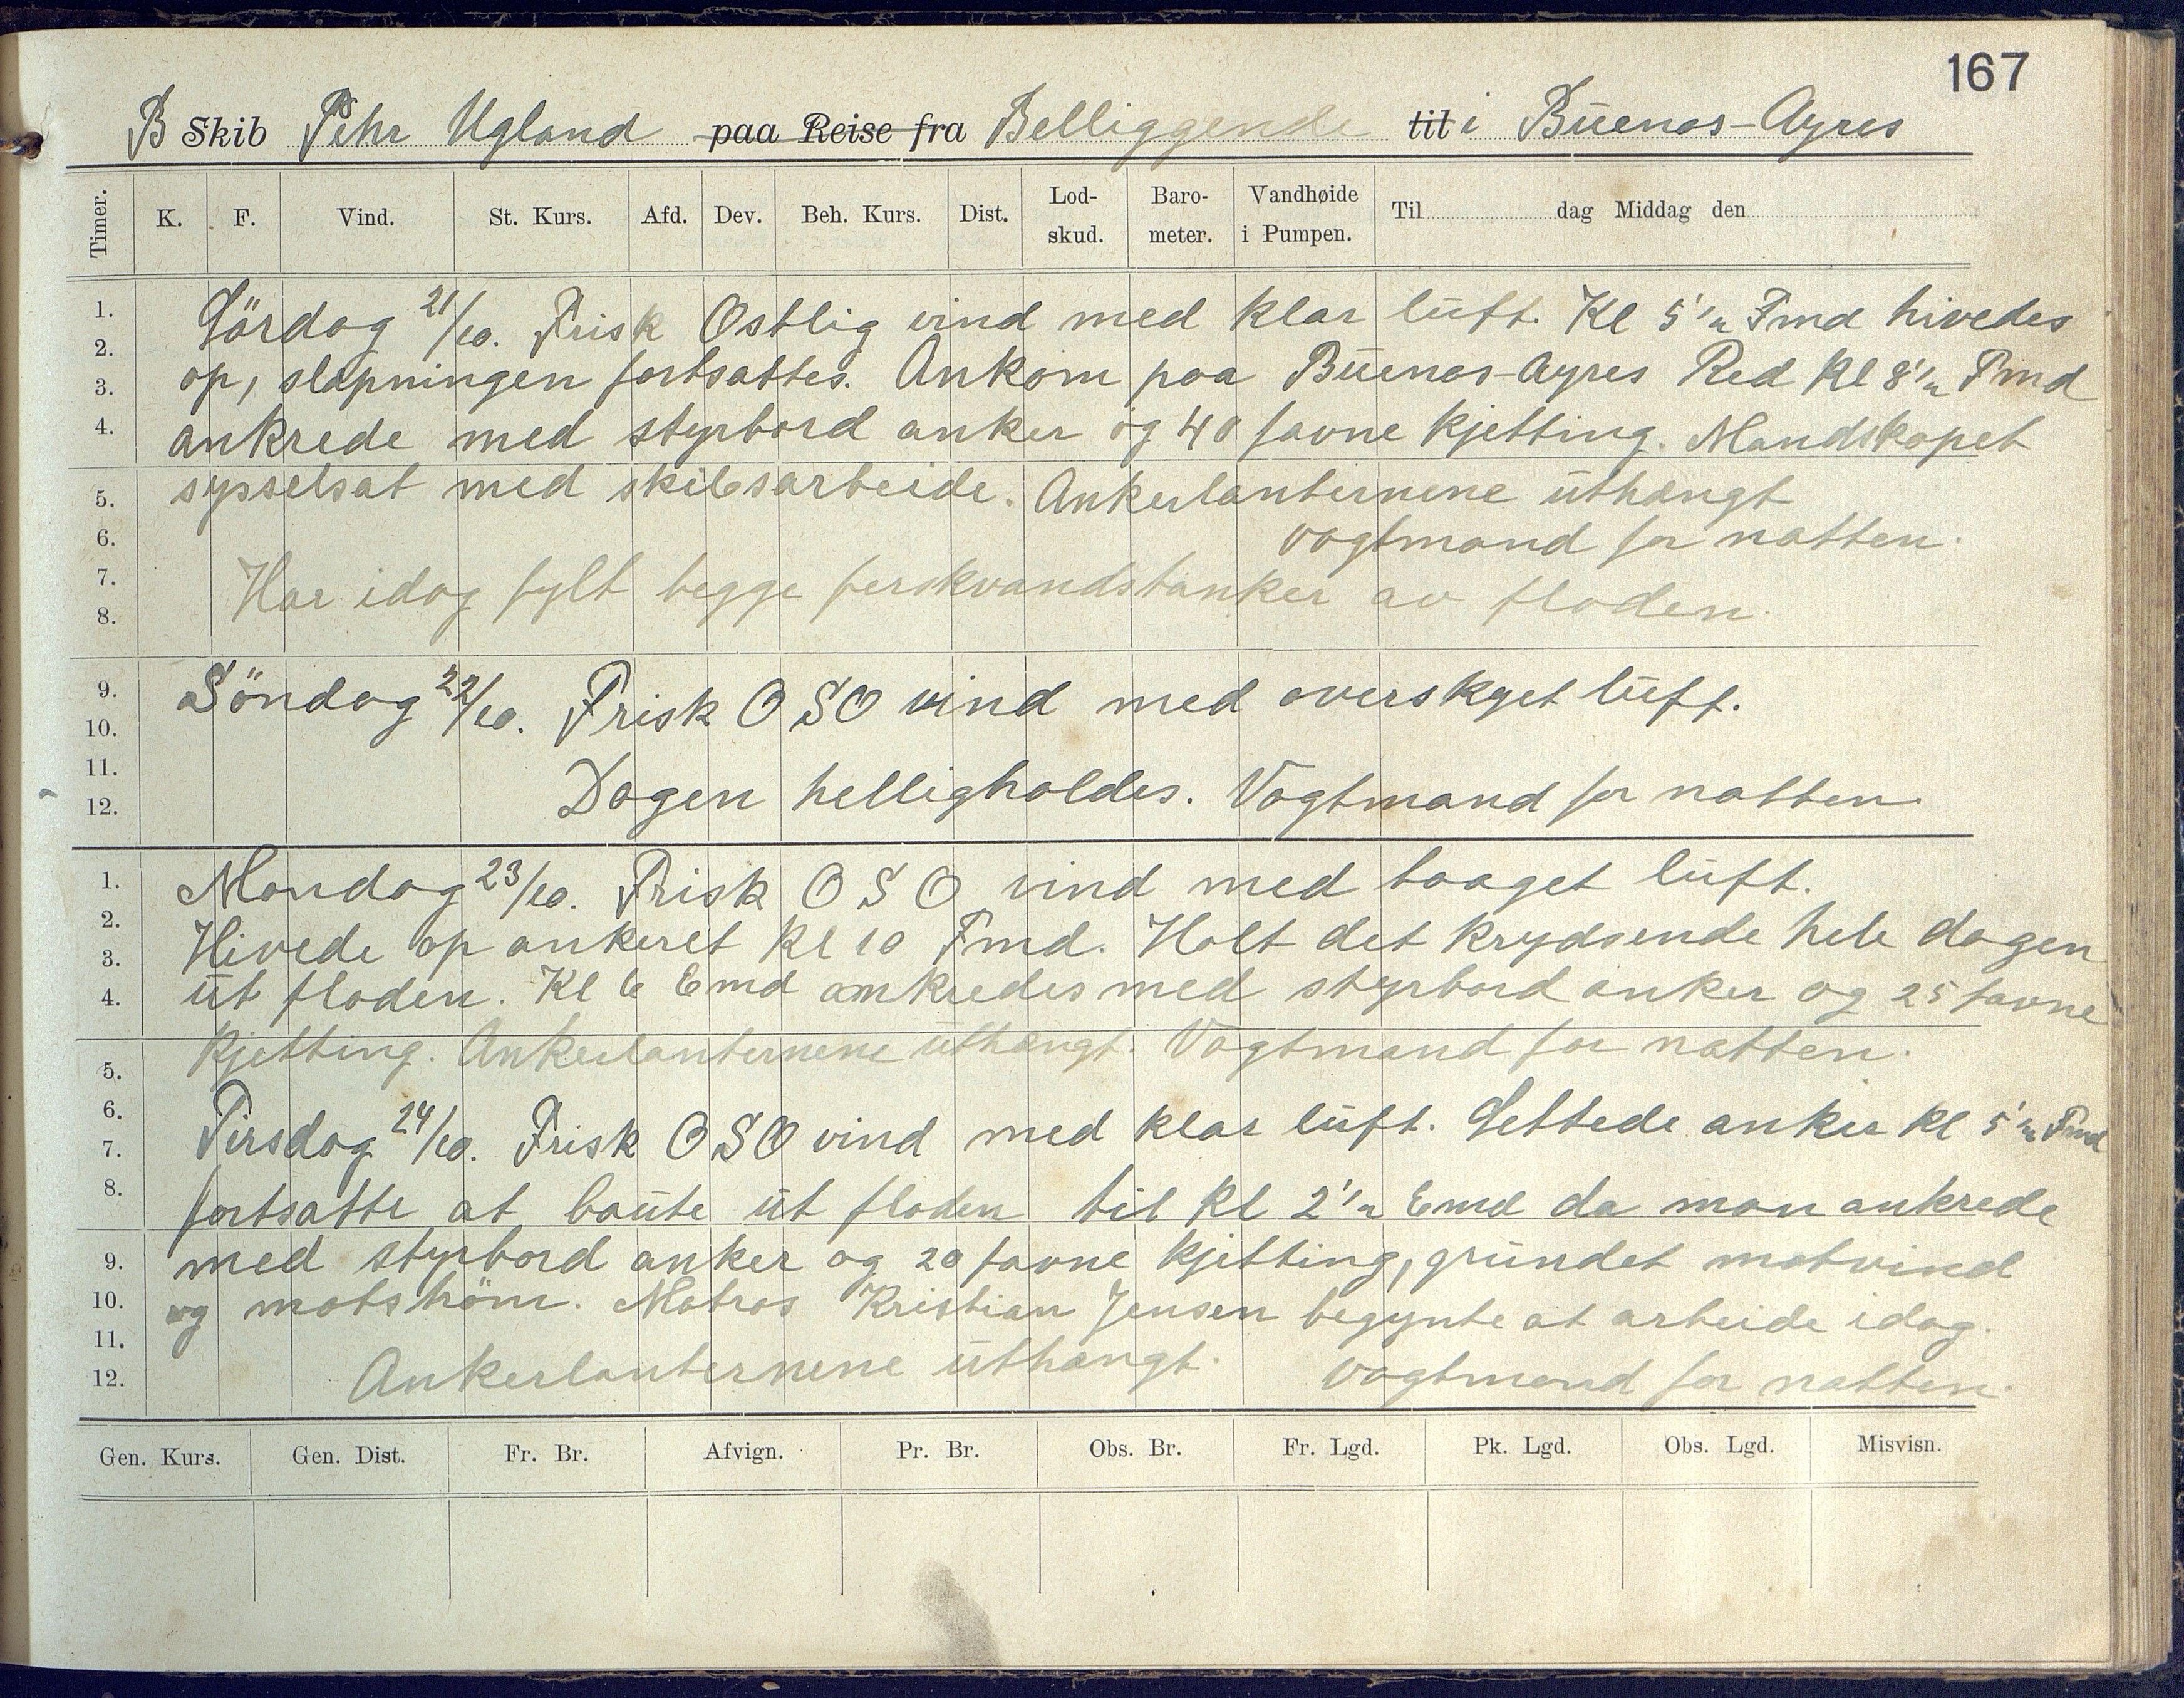 167
B Skib Pehr Ugland paa Reise fra Belliggende til i Büenos-Ayres
Timer. K. F. Vind. St. Kurs. Afd. Dev. Beh. Kurs. Dist. Lod-skud. Baro-meter. Vandhøide i Pumpen. Til dag Middag den
1. Lördag 21/10. Frisk Ostlig vind med klar lüft. Kl 5 1/2 Fmd hivedes
2.
3. op, slæpningen fortsattes. Ankom paa Büenos-Ayres Red Kl 8 1/2 Fmd
4. ankrede med styrbord anker og 40 favne kjetting. Mandskapet
5. sysselsat med skibsarbeide. Ankerlanternene üthængt
6. vagtmand for natten.
7. Har idag fylt begge ferskvandstanker av floden.
8.
9. Söndag 22/10. Frisk OSO vind med overskyet lüft.
10.
11. Dagen helligholdes. Vagtmand for natten
12.
1. Mandag 23/10. Frisk OSO vind med taaget lüft.
2.
3. Hivede op ankeret Kl 10 Fmd. Holt det krydsende hele dagen
4. üt floden. Kl 6 Emd ankredes med styrbord anker og 25 favne
5. kjetting. Ankerlanternene üthængt. Vagtmand for natten.
6.
7. Tirsdag 24/10. Frisk OSO vind med klar lüft. Lettede anker kl 5 1/2 Fmd
8. fortsatte at baüte üt floden til kl 2 1/2 Emd da man ankrede
9. med styrbord anker og 20 favne kjetting, gründet motvind
10. og motström. Matros Kristian Jensen begynte at arbeide idag.
11.
12. Ankerlanternene üthængt. Vagtmand for natten.
Gen. Kurs. Gen. Dist. Fr. Br. Afvign. Pr. Br. Obs. Br. Fr. Lgd. Pk. Lgd. Obs. Lgd. Misvisn.